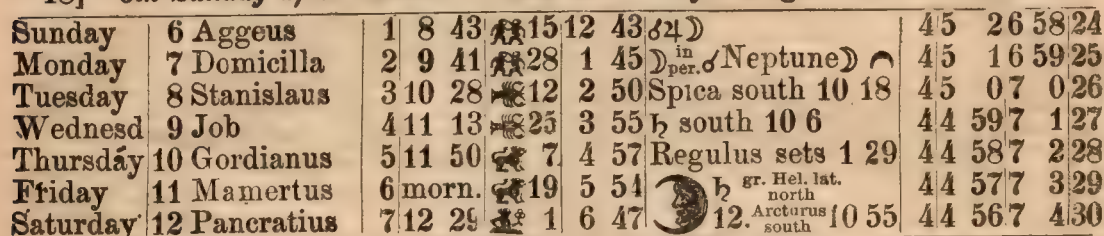 Sunday 6 Aggeus 1 8 43 15 12 43 ☌♃☽ 4 5 2 6 58 24
Monday 7 Domicilla 2 9 41 28 1 45 ☽ in per. ☌ Neptune ☽ 4 5 1 6 59 25
Tuesday 8 Stanislaus 3 10 28 12 2 50 Spica south 10 18 4 5 0 7 0 26
Wednesd 9 Job 4 11 13 25 3 55 ♄ south 10 6 4 4 59 7 1 27
Thursday 10 Gordianus 5 11 50 7 4 57 Regulus sets 1 29 4 4 58 7 2 28
Friday 11 Mamertus 6 morn. 19 5 54 ♄ gr. Hel. lat. north 4 4 57 7 3 29
Saturday 12 Pancratius 7 12 29 1 6 47 12. Arcturus south 10 55 4 4 56 7 4 30